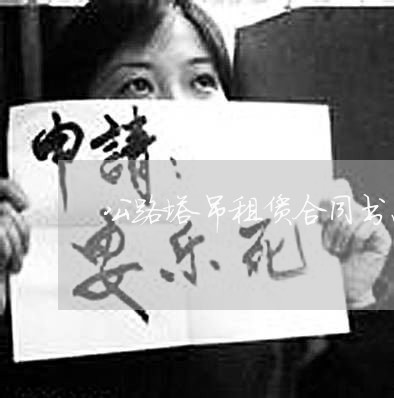 申請：
公路塔吊租赁合同书
要乐死